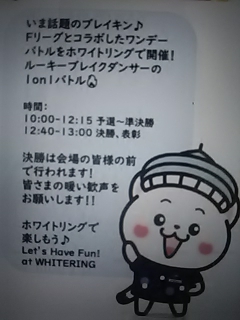 いま話題のブレイキン♪
Fリーグとコラボしたワンデー
バトルをホワイトリングで開催!
ルーキーブレイクダンサーの
1on1バトル
時間:
10:00-12:15 予選〜準決勝
12:40-13:00 決勝、表彰
決勝は会場の皆様の前
で行われます!
皆さまの暖い歓声を
お願いします!!
ホワイトリングで
楽しもう♪
Let's Have Fun!
at WHITERING